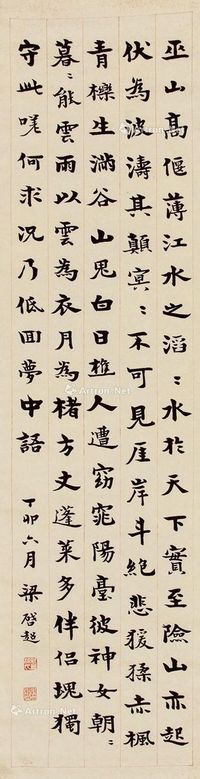 巫山高偃薄江水之滔〻水於天下實至險山亦起
伏為波濤其顛冥〻不可見厓岸斗絕悲猨猱赤楓
青櫟生滿谷山鬼白日樵人遭窈窕陽臺彼神女朝〻
暮〻能雲雨以雲為衣月為褚方丈蓬萊多伴侶塊獨
守此嗟何求況乃低回夢中語
丁卯六月 梁啓超
Artron.Net